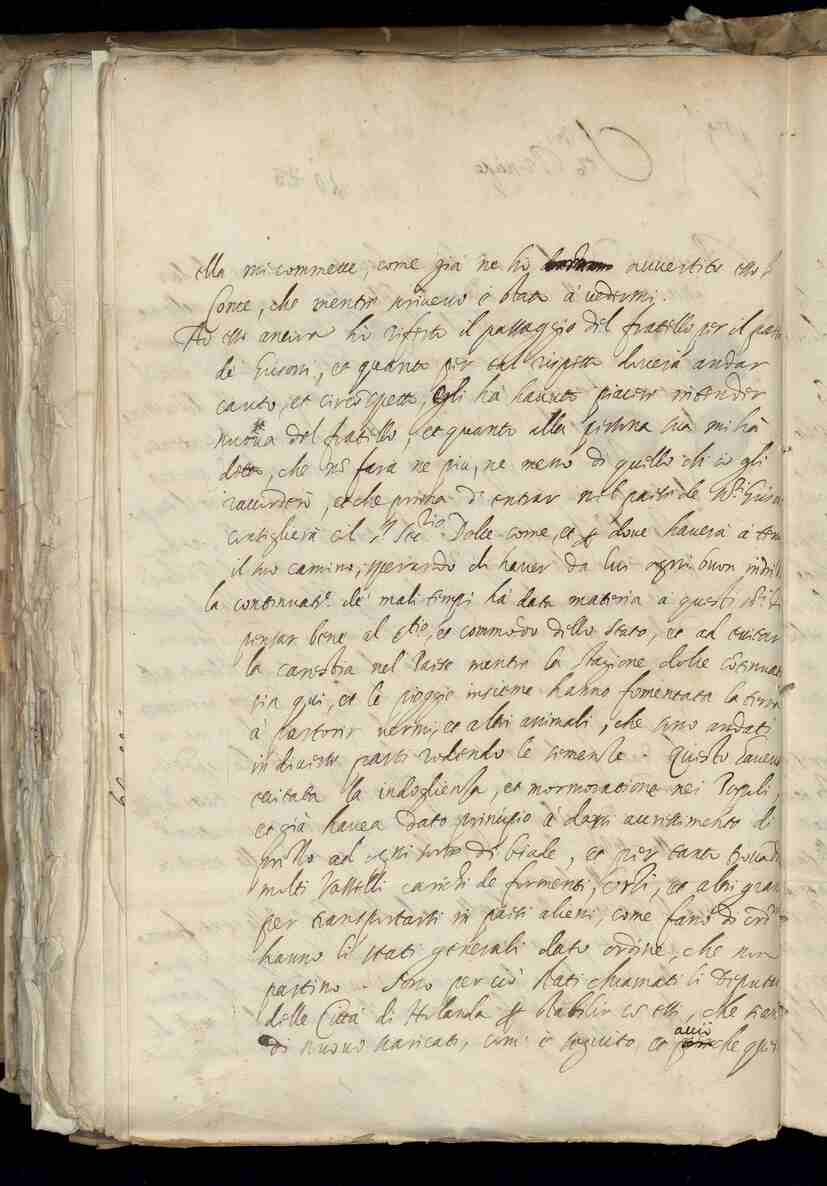 ella mi commette, come già ne hò avvertito esso
Conte, che mentre scrivevo è stato à vedermi.
Ad esso ancora hò riferto il passaggio del fratello per il paese
de Grisoni, et quanto per tal rispetto doverà andar
cauto, et circonspetto, egli hà havuto piacere intender
nuova del fratello, et quanto alla persona sua mi hà
detto, che nõ farà ne piu, ne meno di quello ch'io gli
raccorderò, et che prima di entrar nel paese de
consiglierà col Dolce come, et dove haverà à
il suo camino, sperando di haver da lui ogni buon
la continuat.e de mali tempi hà dato materia à questi
pensar bene al et commodo dello Stato, et ad evitar
la carestia nel Paese mentre la stagione dolce
sia qui, et le pioggie insieme hanno fomentata la terra
à partorir vermi, et altri animali, che sono andati
in diverse parti rodendo le semenze. Questo haveva
eccitata la indoglienza, et mormoratione nei Popoli,
et già havea dato principio à accrescimento di
prezzo ad ogni sorte di biade, et per tanto
molti Vasselli carichi de formenti, orzi, et altri
per transportarsi in paesi alieni, come fanno di
hanno li Stati generali dato ordine, che non
partino. Sono per ciò stati chiamati li Deputati
delle Città di Holanda stabilir cõ essi, che
di nuovo scaricati, come è seguito, et acciò che